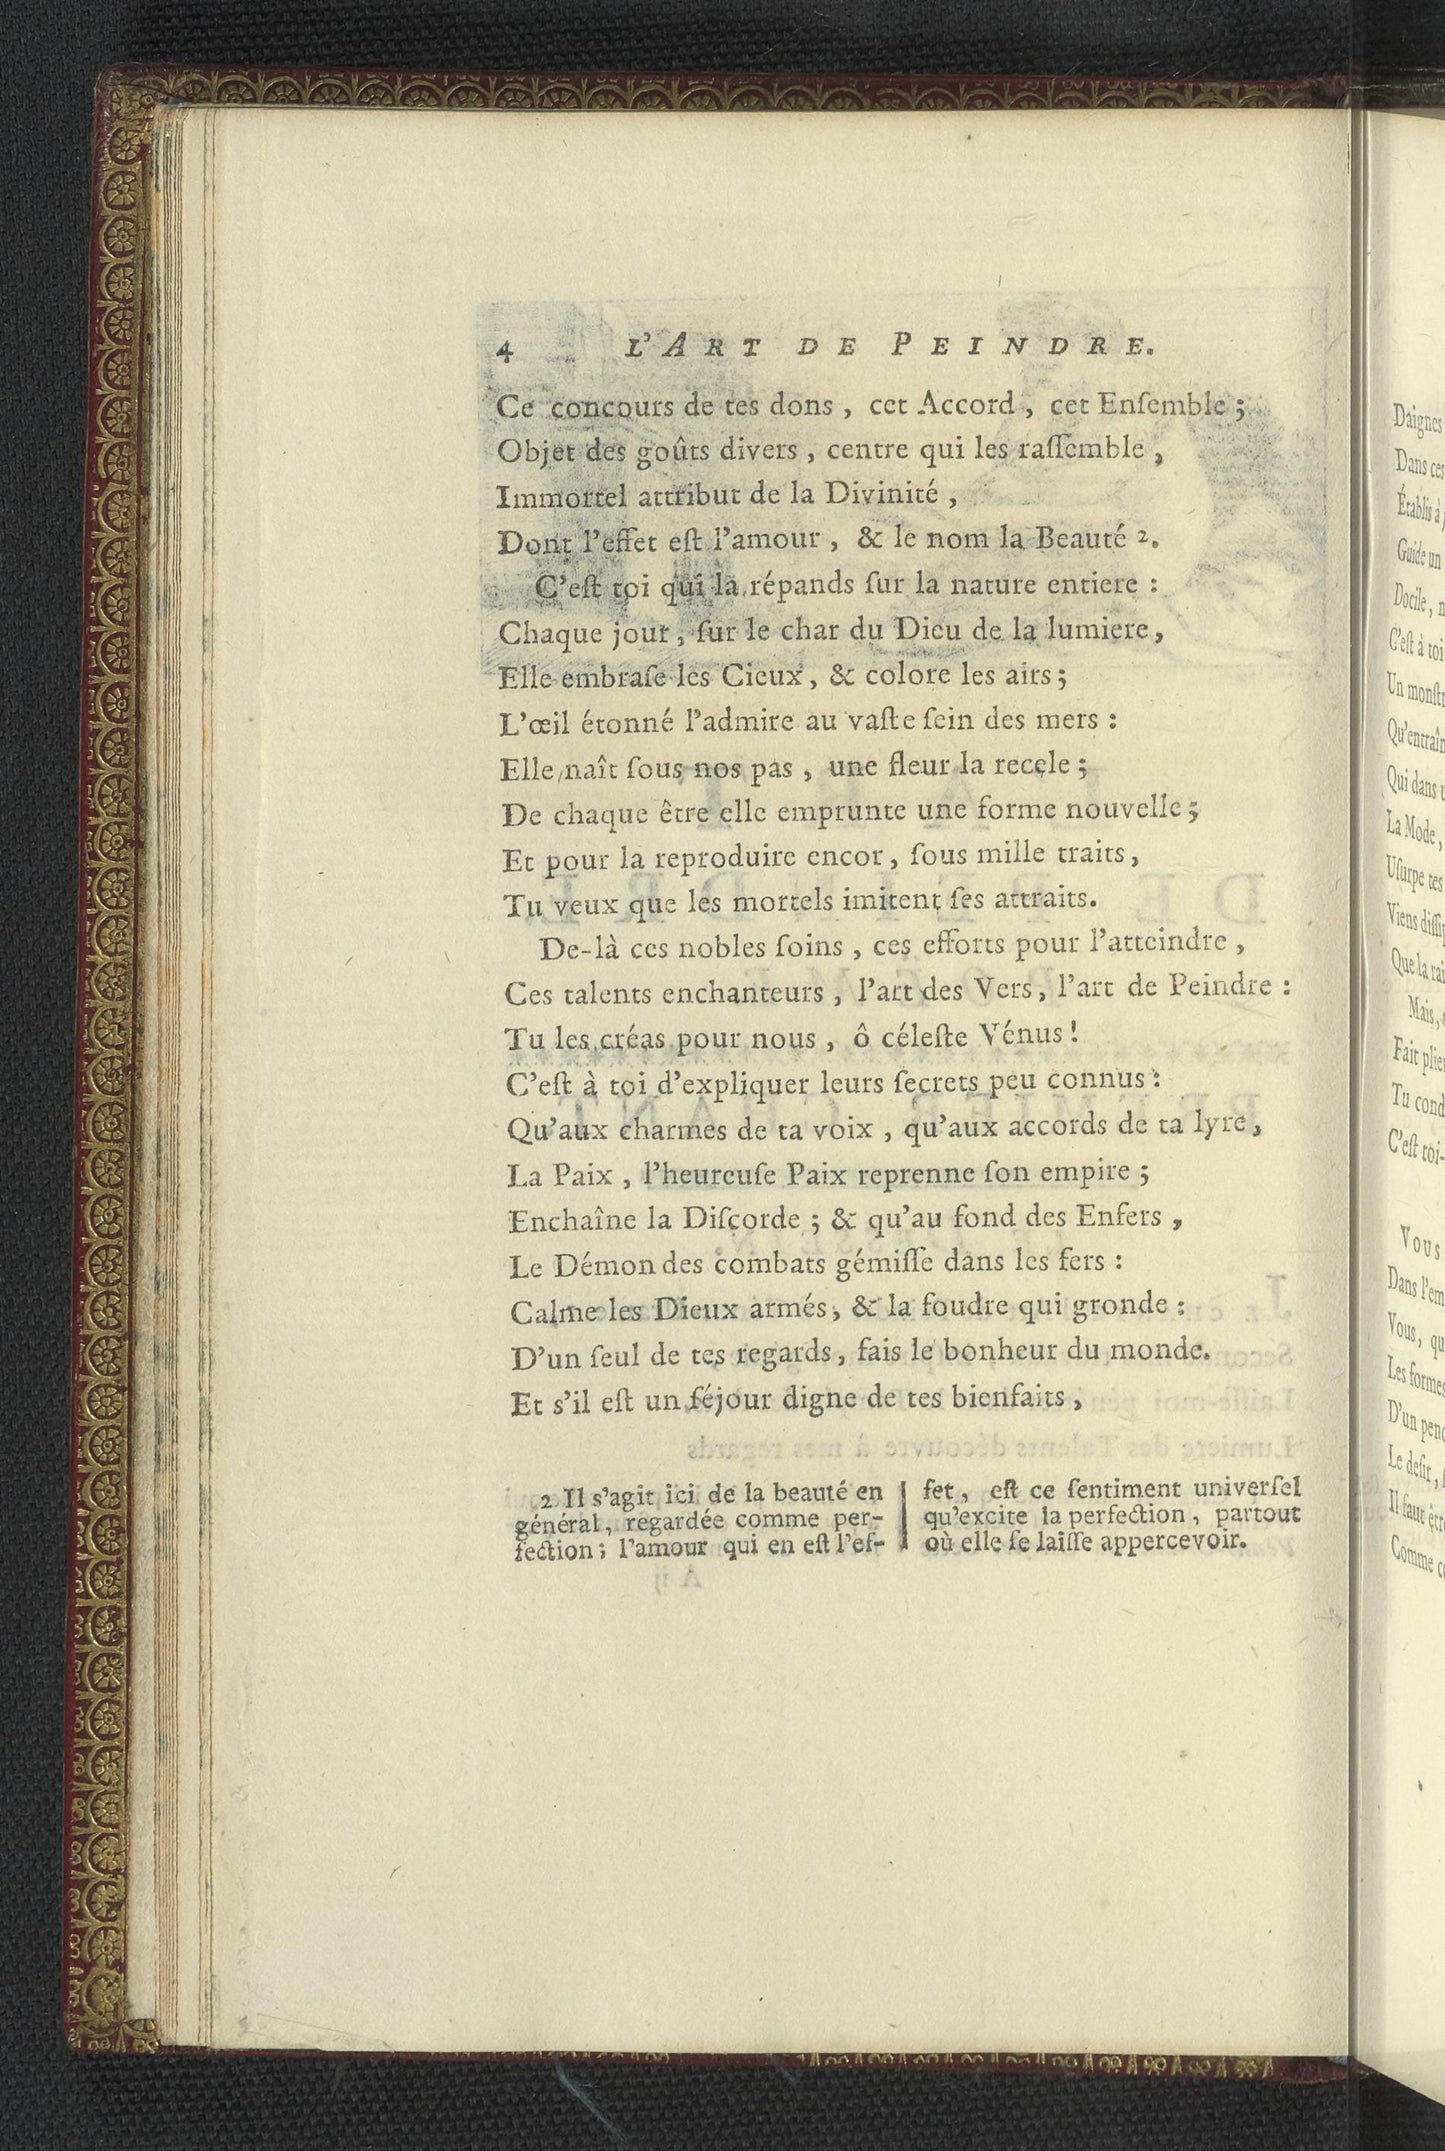 4 L'ART DE PEINDRE.
Ce concours de tes dons, cet Accord, cet Enſemble;
Objet des goûts divers, centre qui les raſſemble,
Immortel attribut de la Divinité,
Dont l'effet eſt l'amour, & le nom la Beauté 2.
C'eſt toi qui la répands ſur la nature entiere:
Chaque jour, ſur le char du Dieu de la lumiere,
Elle embraſe les Cieux, & colore les airs;
L'œil étonné l'admire au vaſte ſein des mers:
Elle naît ſous nos pas, une fleur la recele;
De chaque être elle emprunte une forme nouvelle;
Et pour la reproduire encor, ſous mille traits,
Tu veux que les mortels imitent ſes attraits.
De-là ces nobles ſoins, ces efforts pour l'atteindre,
Ces talents enchanteurs, l'art des Vers, l'art de Peindre:
Tu les créas pour nous, ô céleſte Vénus!
C'eſt à toi d'expliquer leurs ſecrets peu connus:
Qu'aux charmes de ta voix, qu'aux accords de ta lyre,
La Paix, l'heureuſe Paix reprenne ſon empire;
Enchaîne la Diſcorde; & qu'au fond des Enfers,
Le Démon des combats gémiſſe dans les fers:
Calme les Dieux armés, & la foudre qui gronde:
D'un ſeul de tes regards, fais le bonheur du monde.
Et s'il eſt un ſéjour digne de tes bienfaits,
2 Il s'agit ici de la beauté en
général, regardée comme per-
fection; l'amour qui en eſt l'ef-
fet, eſt ce ſentiment univerſel
qu'excite la perfection, partout
où elle ſe laiſſe appercevoir.
Daignes
Dans ces
Établis à
Guide un
Docile,
C'eſt à toi
Un monſtr
Qu'entraîn
Qui dans
La Mode,
Uſurpe tes
Viens diſſi
Que la rai
Mais,
Fait plier
Tu cond
C'eſt toi-
Vous
Dans l'em
Vous, qu
Les formes
D'un penc
Le deſir,
Il faut êtr
Comme ce